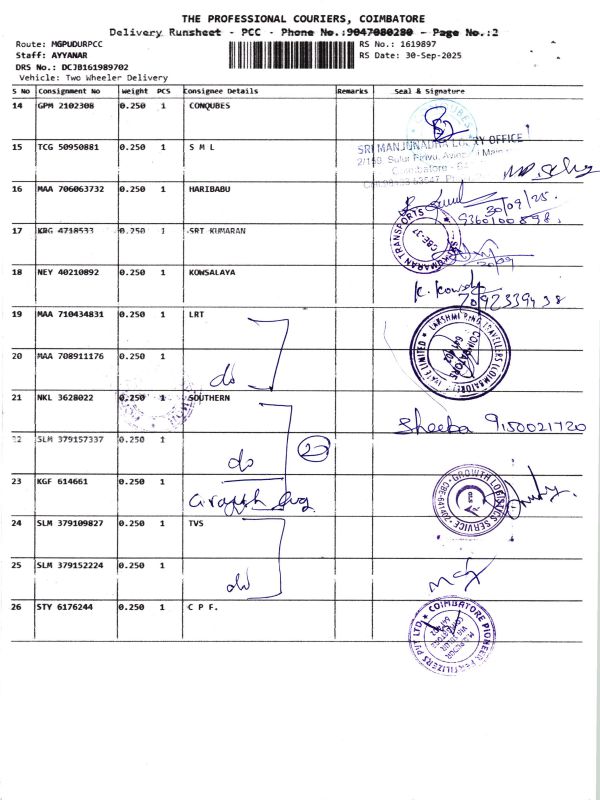 THE PROFESSIONAL COURIERS, COIMBATORE
Delivery Runsheet - PCC - Phone No.:9047080280 - Page No.:2
Route: MGPUDURPCC
Staff: AYYANAR
DRS No.: DCJB161989702
Vehicle: Two Wheeler Delivery
RS No.: 1619897
RS Date: 30-Sep-2025
S No Consignment No Weight PCS Consignee Details Remarks Seal & Signature
14 GPM 2102308 0.250 1 CONQUBES
15 TCG 50950881 0.250 1 S M L
SRI MANJUNADHA LORRY OFFICE
Coimbatore
16 MAA 706063732 0.250 1 HARIBABU
30/09/25.
9360100898.
17 KRG 4718533 0.250 1 SRI KUMARAN
SRI KUMARAN TRANSPORTS
CBE-37
18 NEY 40210892 0.250 1 KOWSALYA
K. Kowsalya
19 MAA 710434831 0.250 1 LRT
do
LAKSHMI RING TRAVELLERS (COIMBATORE) PRIVATE LIMITED
COIMBATORE
641 402
20 MAA 708911176 0.250 1
21 NKL 3628022 0.250 1 SOUTHERN
Sheeba 9150021720
22 SLM 379157337 0.250 1
do
2
23 KGF 614661 0.250 1
GROWTH LOGISTICS SERVICE
24 SLM 379109827 0.250 1 TVS
do
25 SLM 379152224 0.250 1
26 STY 6176244 0.250 1 C P F.
COIMBATORE PIONEER FERTILIZERS PVT LTD